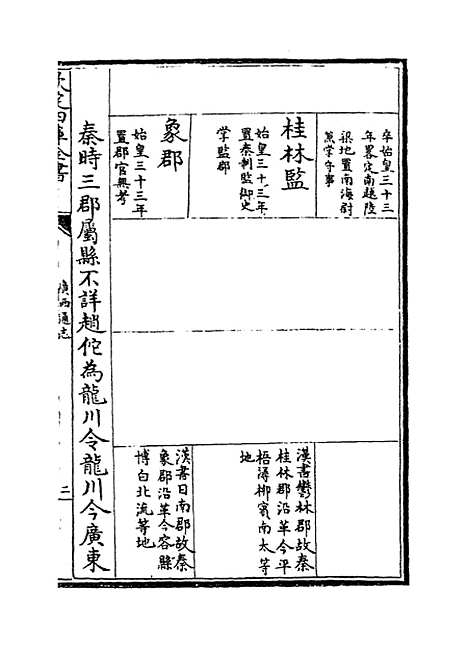 年畧定南越陸
梁地置南海尉
兼掌守事
桂林監
始皇三十三年
置秦制監御史
掌監郡
漢書鬱林郡故秦
桂林郡沿革今平
梧潯柳賓南太等
地
象郡
始皇三十三年
置郡官無考
漢書日南郡故秦
象郡沿革今容縣
博白北流等地
秦時三郡屬縣不詳趙佗為龍川令龍川今廣東
欽定四庫全書
廣西通志
三